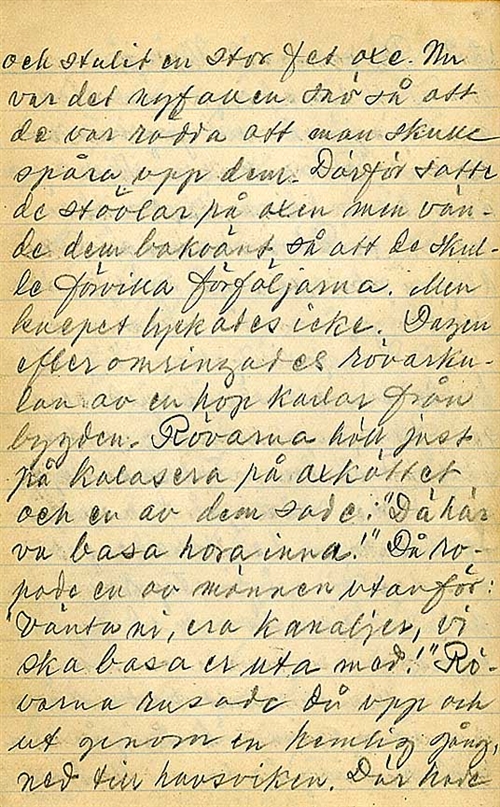 och stulit en stor fet oxe. Nu
var det nyfallen snö så att
de var rädda att man skulle
spåra upp dem. Därför satte
de stövlar på oxen men vän-
de dem bakvänt, så att de skul-
le förvilla förföljarna. Men
knepet lyckades icke. Dagen
efter omringades rövarku-
lan av en hop karlar från
bygden. Rövarna höll just
på kalasera på oxköttet
och en av dem sade: "Dä här
va basa hora inna!" Då ro-
pade en av männen utanför:
"Vänta ni, era kanaljer, vi
ska basa er uta mad!" Rö-
varna rusade då upp och
ut genom en hemlig gång,
ned till havsviken. Där hade